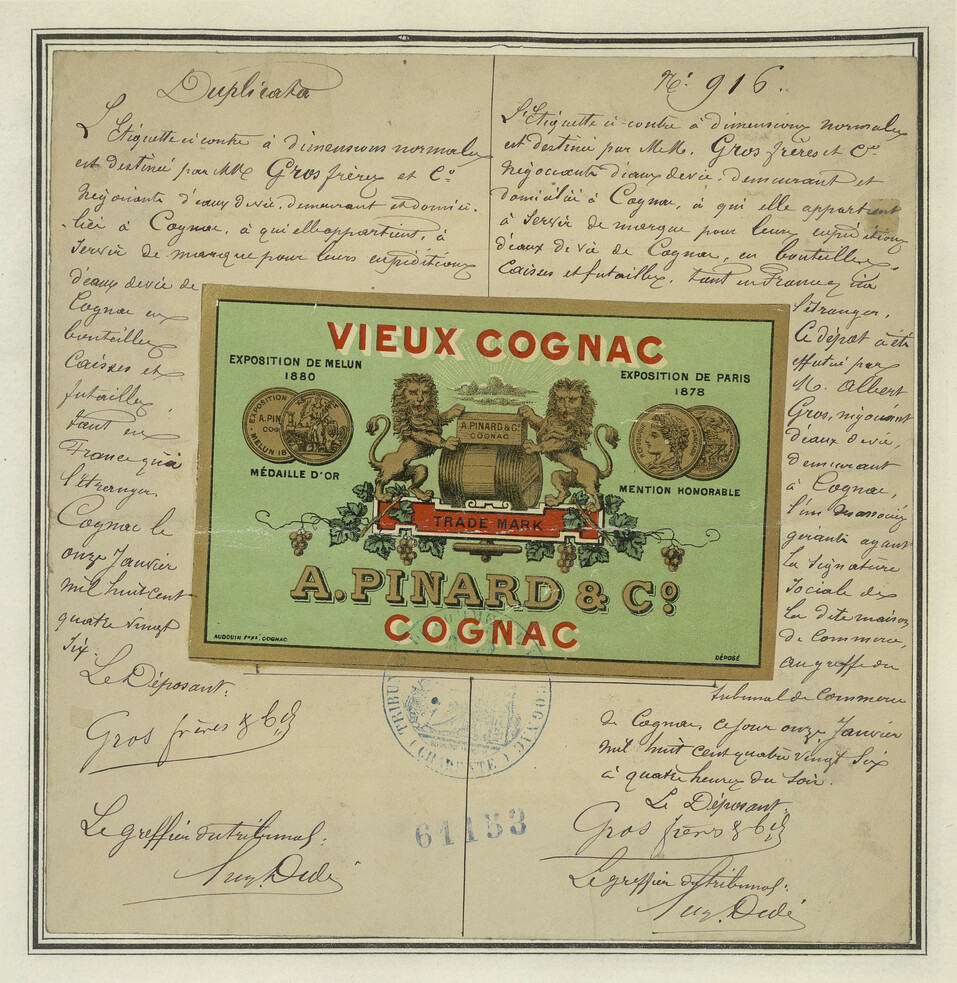 Duplicata
L'Etiquette ci contre à dimensions normales
est destiné par MM. Gros frères et Cie
Négociants d'eaux de vie, demeurant et domici-
-liés à Cognac, à qui elle appartient, à
Servir de marque pour leurs expéditions
d'eaux de vie de
Cognac en
bouteilles
Caisses et
futailles,
tant en
France qu'à
l'Etranger
Cognac le
onze Janvier
mil huit cent
quatre vingt
Six.
Le Déposant:
Gros frères & Cie
Le greffier du tribunal:
Aug. Dedé
No. 916.
L'Etiquette ci-contre à dimensions normales
est destiné par MM. Gros frères et Cie
Négociants d'eaux de vie, demeurant et
domiciliés à Cognac, à qui elle appartient
à Servir de marque pour leurs expéditions
d'eaux de vie de Cognac, en bouteilles,
Caisses et futailles, tant en France qu'à
l'étranger.
Ce dépôt a été
effectué par
M. Albert
Gros, négociant
d'eaux de vie,
demeurant
à Cognac,
l'un des associés
gérants ayant
la Signature
Sociale de
la dite maison
de Commerce,
au greffe du
tribunal de Commerce
de Cognac, ce jour onze Janvier
mil huit cent quatre vingt Six
à quatre heures du Soir.
Le Déposant
Gros frères & Cie
Le greffier du tribunal:
Aug. Dedé
VIEUX COGNAC
EXPOSITION DE MELUN
1880
MÉDAILLE D'OR
EXPOSITION DE PARIS
1878
MENTION HONORABLE
A. PINARD & Co.
COGNAC
TRADE MARK
A. PINARD & Co.
COGNAC
AUDOUIN Fres. COGNAC
DÉPOSÉ
TRIBUN
COGNAC
(CHARENTE)
61153